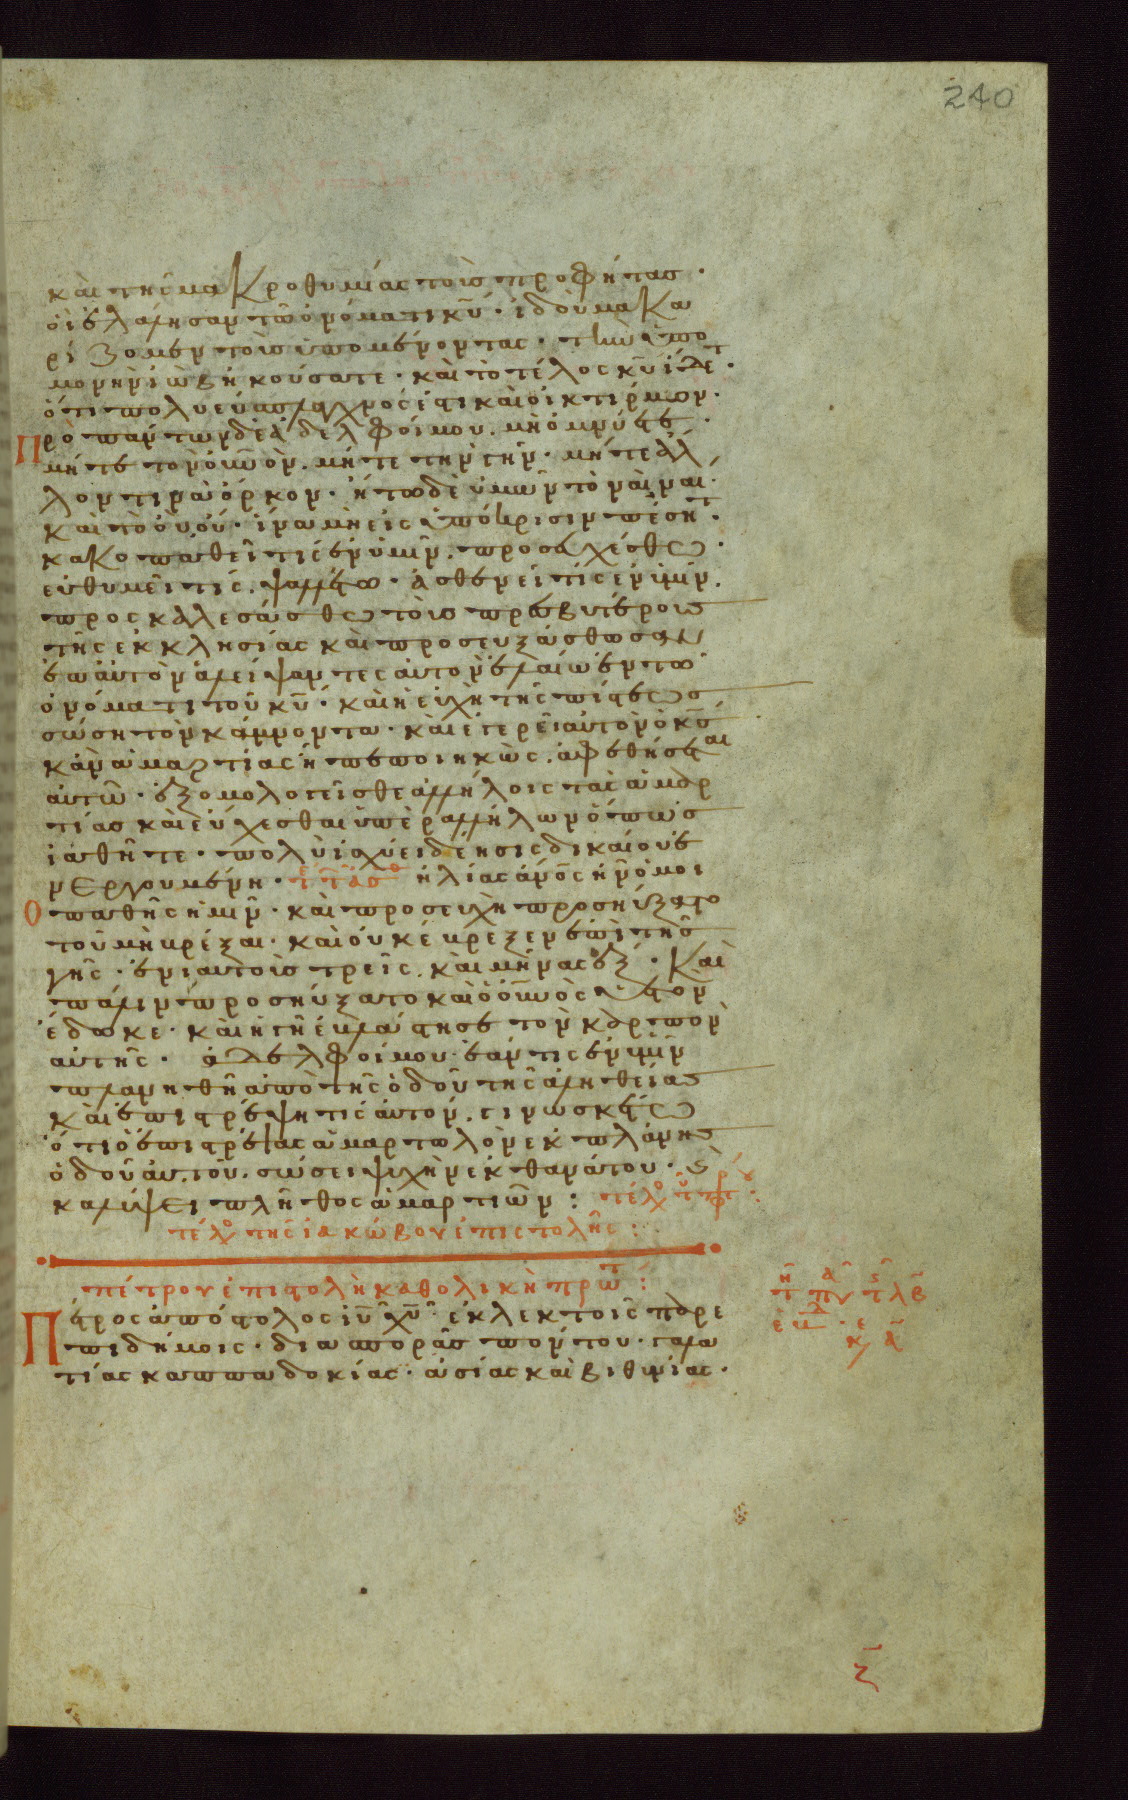 240
καὶ τῆς μακροθυμίας τοὺς προφήτας ·
οἱ ἐλάλησαν τῶ ὀνόματι κῦ · ἰδοὺ μακα
ρίζομεν τοὺς ὑπομένοντας · τὴν ὑπο
μονὴν ἰὼβ ἠκούσατε · καὶ τὸ τέλος κῦ ἴδετ ·
ὅτι πολυεύσπλαχνός ἐστι καὶ οἰκτίρμων ·
Πρὸ πάντων δὲ ἀδελφοί μου · μὴ ὀμνύετε ·
μήτε τὸν οὐνον · μήτε τὴν γῆν · μήτε ἄλ
λον τινὰ ὅρκον · ἤτω δὲ ὑμῶν τὸ ναὶ ναί ·
καὶ τὸ οὒ οὔ · ἵνα μὴ εἰς ὑπόκρισιν πέσητ ·
κακοπαθεῖ τις ἐν ὑμῖν · προσευχέσθω ·
εὐθυμεῖ τίς · ψαλλέτω · ἀσθενεῖ τίς ἐν ὑμῖν ·
προσκαλεσάσθω τοὺς πρεσβυτέρους
τῆς ἐκκλησίας καὶ προσευξάσθωσαν
ἐπ αὐτὸν ἀλείψαντες αὐτὸν ἐλαίω ἐν τῶ
ὀνόματι τοῦ κῦ · καὶ ἡ εὐχὴ τῆς πίστεως
σώσῃ τὸν κάμνοντα · καὶ ἐγερεῖ αὐτὸν ὁ κς
κἂν ἁμαρτίας ἦ πεποιηκὼς · ἀφεθήσεται
αὐτῶ · ἐξομολογεῖσθε ἀλλήλοις τὰς ἁμαρ
τίας καὶ εὔχεσθαι ὑπὲρ ἀλλήλων ὅπως
ἰαθῆτε · πολὺ ἰσχύει δέησις δικαίου ἐ
νεργουμένη · ἠλίας ἀνος ἦν ὁμοι
οπαθὴς ἡμῖν · καὶ προσευχὴ προσηύξατο
τοῦ μὴ βρέξαι · καὶ οὐκ ἔβρεξεν ἐπὶ τῆς
γῆς · ἐνιαυτοὺς τρεῖς · καὶ μῆνας ἕξ · Καὶ
πάλιν προσηύξατο καὶ ὁ οὐνος ὑετὸν
ἔδωκε · καὶ ἡ γῆ ἐβλάστησε τὸν καρπὸν
αὐτῆς · ἀδελφοί μου · ἐάν τις ἐν ὑμῖν
πλανηθῆ ἀπὸ τῆς ὁδοῦ τῆς ἀληθείας
καὶ ἐπιστρέψη τις αὐτόν · γινωσκέτω
ὅτι ὁ ἐπιστρέψας ἁμαρτωλὸν ἐκ πλάνης
ὁδοῦ αὐτοῦ · σώσει ψυχὴν ἐκ θανάτου ·
καλύψει πλῆθος ἁμαρτιῶν :
τέλο τῆς ἰακώβου ἐπιστολῆς :
πέτρου ἐπιστολὴ καθολικὴ πρώτ :
Πέτρος ἀπόστολος ἰῦ χῦ · ἐκλεκτοῖς παρε
πιδήμοις · διασπορᾶς πόντου · γαλα
τίας καππαδοκίας · ἀσίας καὶ βιθυνίας ·